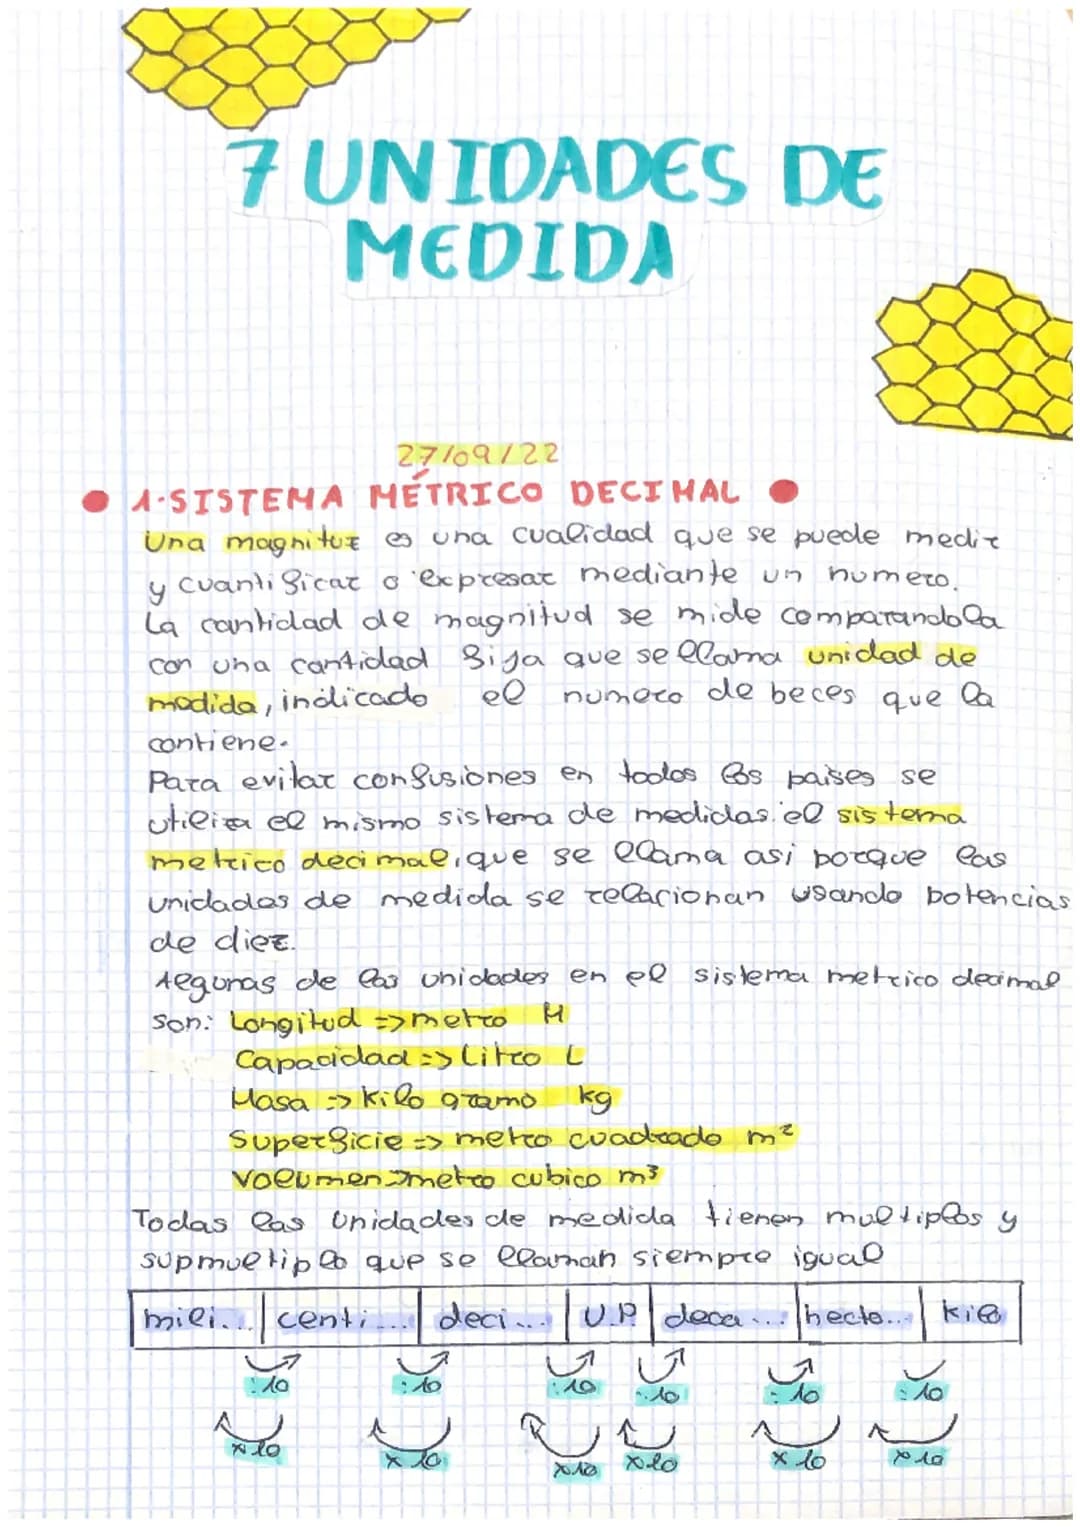 7 UNIDADES DE
MEDIDA
27/09/22
1·SISTEMA MÉTRICO DECIMAL
Una magnitur es una cualidad que se puede medir
y cuantificar o expresar mediante un numero.
La cantidad de magnitud se mide comparandola
con una cantidad fija que se llama unidad de
medida, indicado el numero de beces que la
contiene.
Para evitar confusiones en todos los paises se
utiliza el mismo sistema de medidas: el sistema
metrico decimal, que se llama asi porque las
unidades de medida se relacionan usando potencias
de diez.
Algunas de las unidades en el sistema metrico decimal
son: Longitud => metro M
Capacidad => Litro L
Masa => kilo gramo kg
Superficie => metro cuadrado m²
Volumen => metro cubico m³
Todas las Unidades de medida tienen multiplos y
supmultiplo que se llaman siempre igual
mili... centi... deci... U.P. deca... hecto... kilo
:10 :10 :10 :10 :10 :10
x10 x10 x10 x10 x10 x10